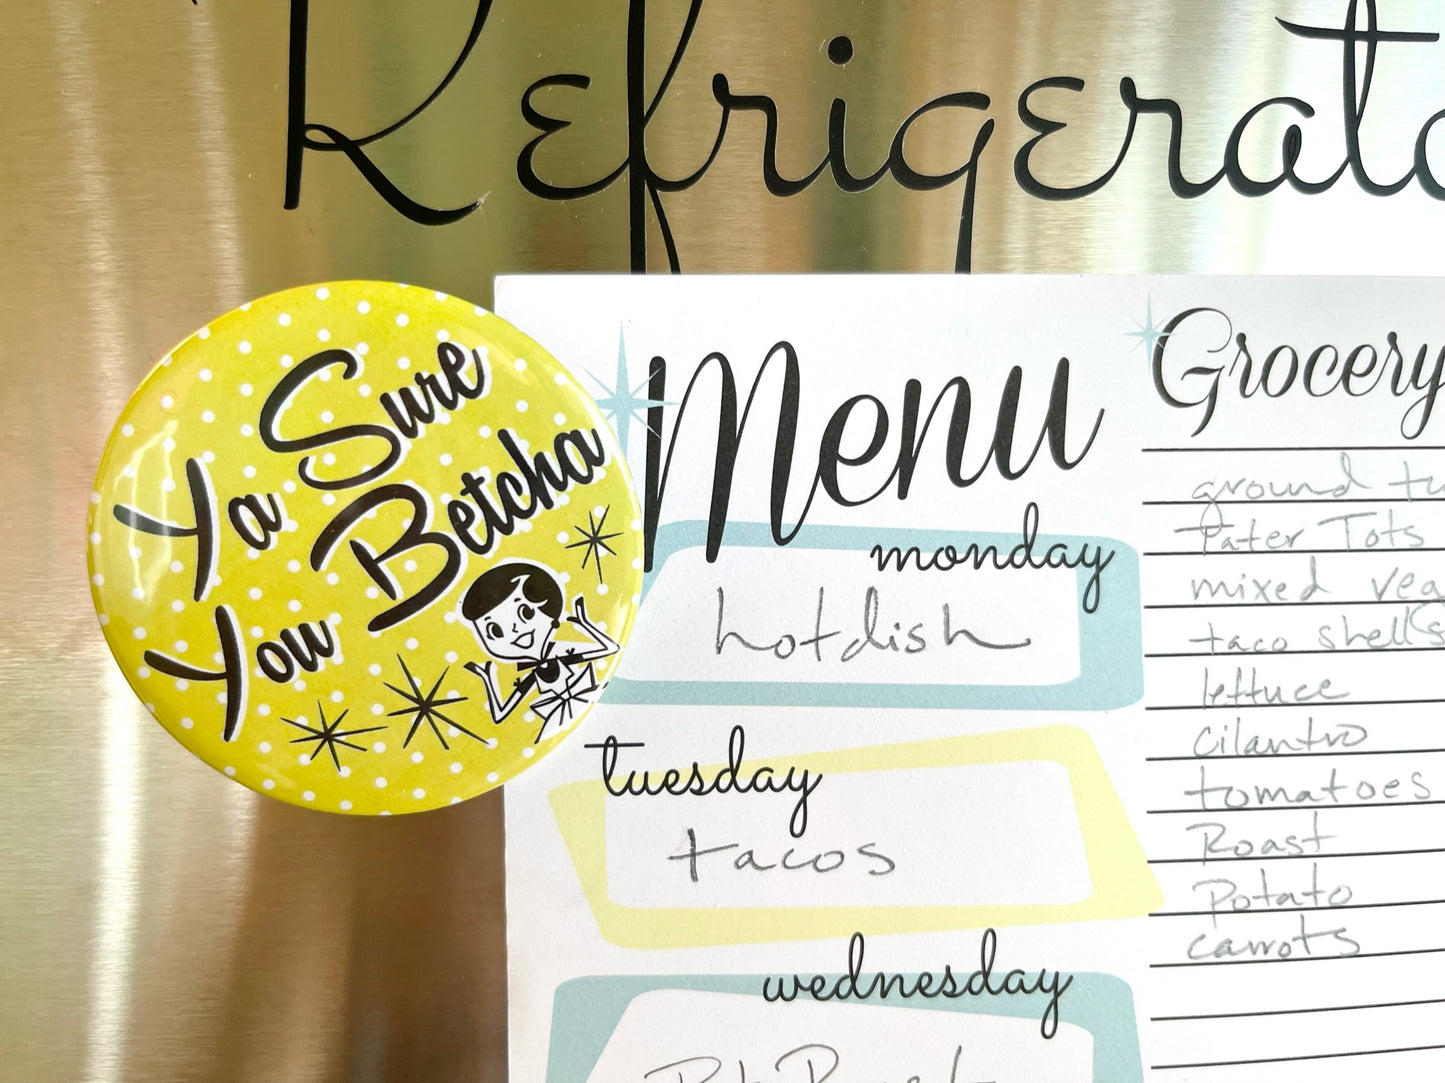 Refrigerato
Ya Sure
You Betcha
Menu
monday
hotdish
tuesday
tacos
wednesday
Pot Roast
Grocery
ground tu
Tater Tots
mixed veg
taco shells
lettuce
cilantro
tomatoes
Roast
Potato
carrots